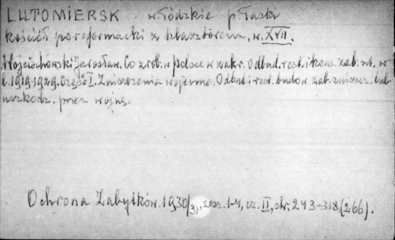 LUTOMIERSK w. łódzkie p. łaski
kościół poreformacki z klasztorem, w. XVII.
Wojciechowski Jarosław. Co zrob. w Polsce w zakr. Odbud. rest. i kons. zab. szt. w
l. 1919-1929. Część I. Zniszczenia wojenne. Odbud. i rest. budow. zab. zniszcz. lub
uszkodz. przez wojnę.
Ochrona Zabytków. 1930/31, zesz. 1-4, cz. II, str. 243-318 (266).